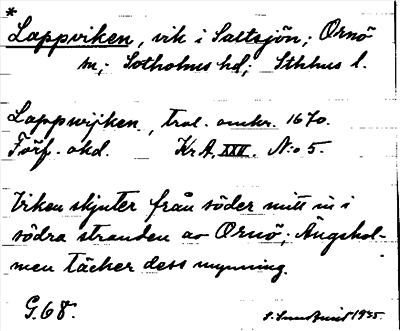 *
Lappviken, vik i Saltsjön; Ornö
sn; Sotholms hd; Sthlms l.
Lappwijken, trol. omkr. 1670.
Förf. okd. Kr A, XXV. N:o 5.
Viken skjuter från söder mitt in i
södra stranden av Ornö; Ängshol-
men täcker dess mynning.
G. 68.
1935.